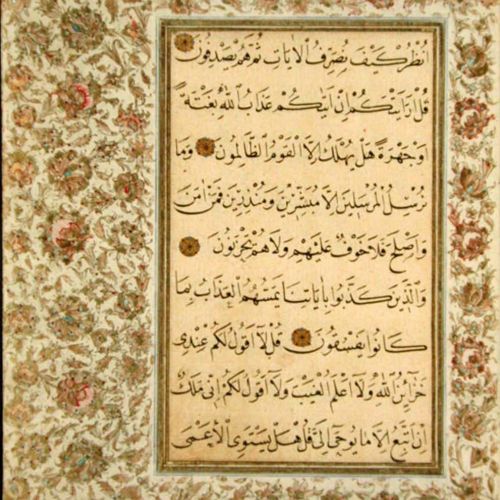 انْظُرْ كَيْفَ نُصَرِّفُ الْاٰيَاتِ ثُمَّ هُمْ يَصْدِفُونَ
قُلْ اَرَاَيْتَكُمْ اِنْ اَتٰيكُمْ عَذَابُ اللّٰهِ بَغْتَةً
اَوْ جَهْرَةً هَلْ يُهْلَكُ اِلَّا الْقَوْمُ الظَّالِمُونَ وَمَا
نُرْسِلُ الْمُرْسَلِينَ اِلَّا مُبَشِّرِينَ وَمُنْذِرِينَ فَمَنْ اٰمَنَ
وَاَصْلَحَ فَلَا خَوْفٌ عَلَيْهِمْ وَلَا هُمْ يَحْزَنُونَ
وَالَّذِينَ كَذَّبُوا بِاٰيَاتِنَا يَمَسُّهُمُ الْعَذَابُ بِمَا
كَانُوا يَفْسُقُونَ قُلْ لَا اَقُولُ لَكُمْ عِنْدِى
خَزَائِنُ اللّٰهِ وَلَا اَعْلَمُ الْغَيْبَ وَلَا اَقُولُ لَكُمْ اِنِّى مَلَكٌ
اِنْ اَتَّبِعُ اِلَّا مَا يُوحٰى اِلَىَّ قُلْ هَلْ يَسْتَوِى الْاَعْمٰى